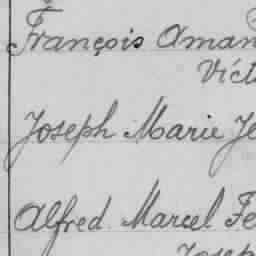 François Aman
Vict
Joseph Marie Je
Alfred Marcel Fe
Joseph